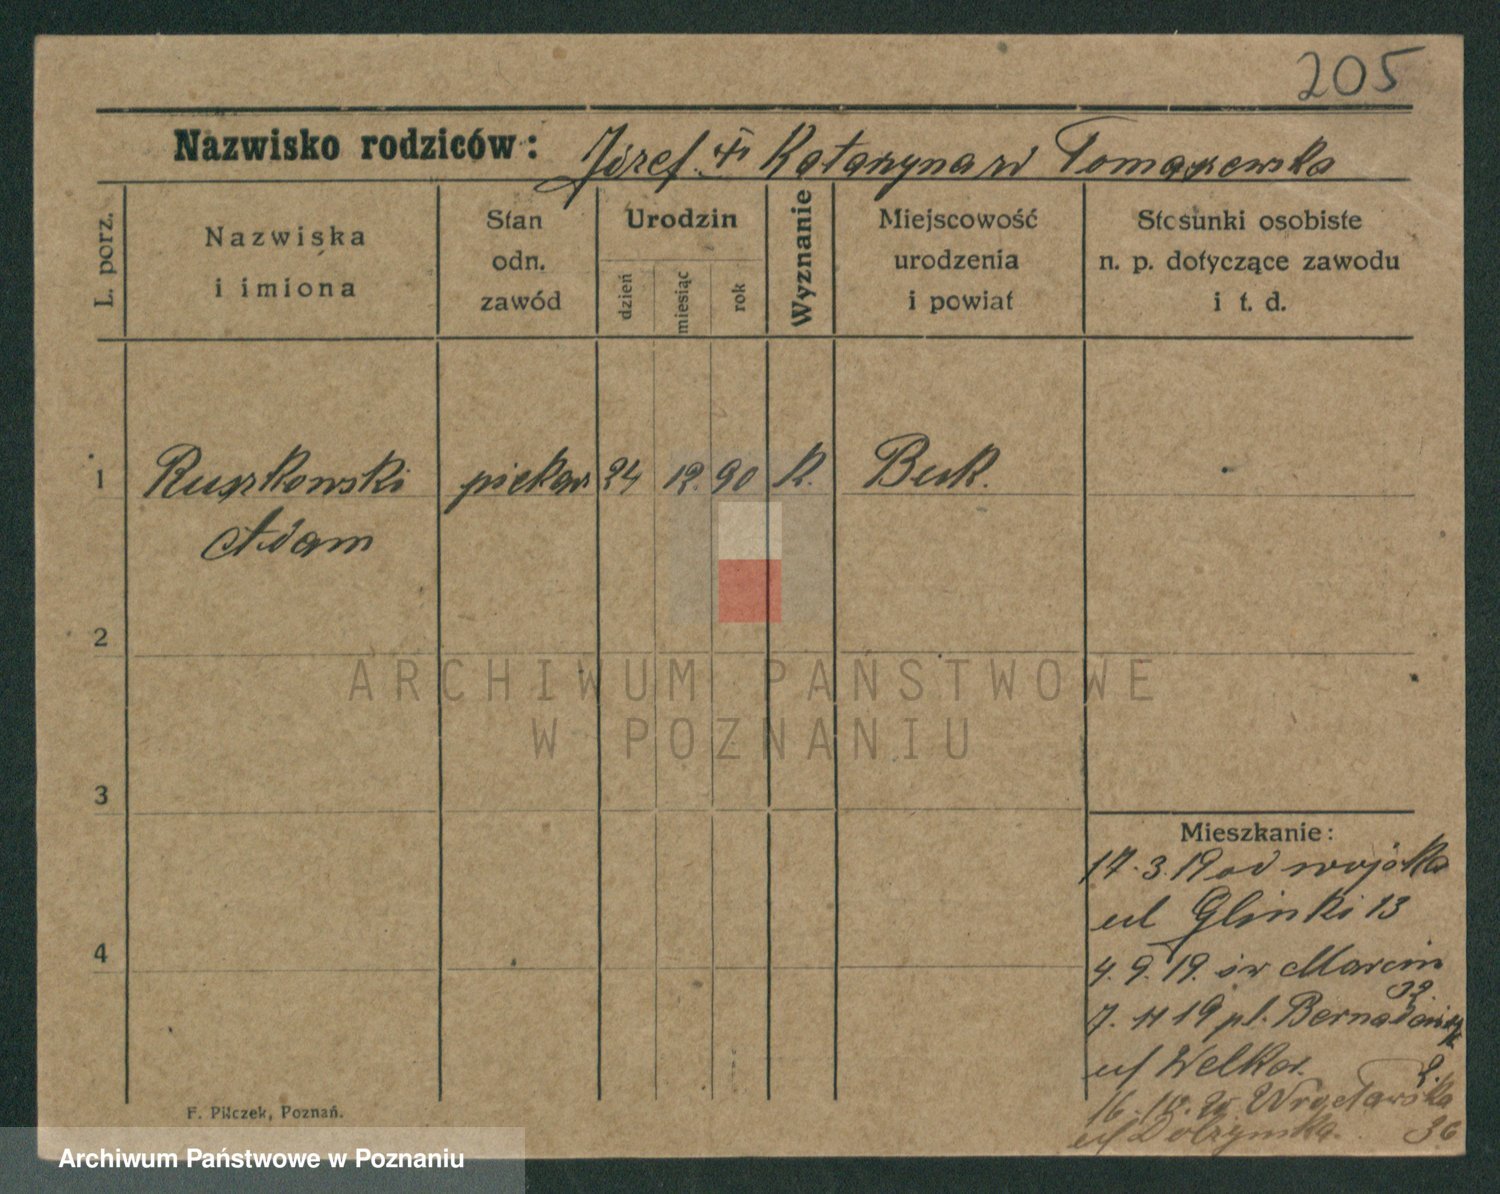 205
Nazwisko rodziców: Józef i Katarzyna zd Tomaszewska
L. porz.
Nazwiska i imiona
Stan odn. zawód
Urodzin
dzień
miesiąc
rok
Wyznanie
Miejscowość urodzenia i powiat
Stosunki osobiste n. p. dotyczące zawodu i t. d.
1 Ruszkowski piekarz 24 12. 90 K. Buk.
Adam
2
ARCHIWUM PAŃSTWOWE
W POZNANIU
3
Mieszkanie:
17. 3. 19 od wojska
ul Glinki 13
4
4. 9. 19. św Marcin
32.
7. 11 19 pl. Bernardyński
ul Welka.
2.
16. Wrocławska
ul Dolzynska. 36
F. Pilczek, Poznań.
Archiwum Państwowe w Poznaniu